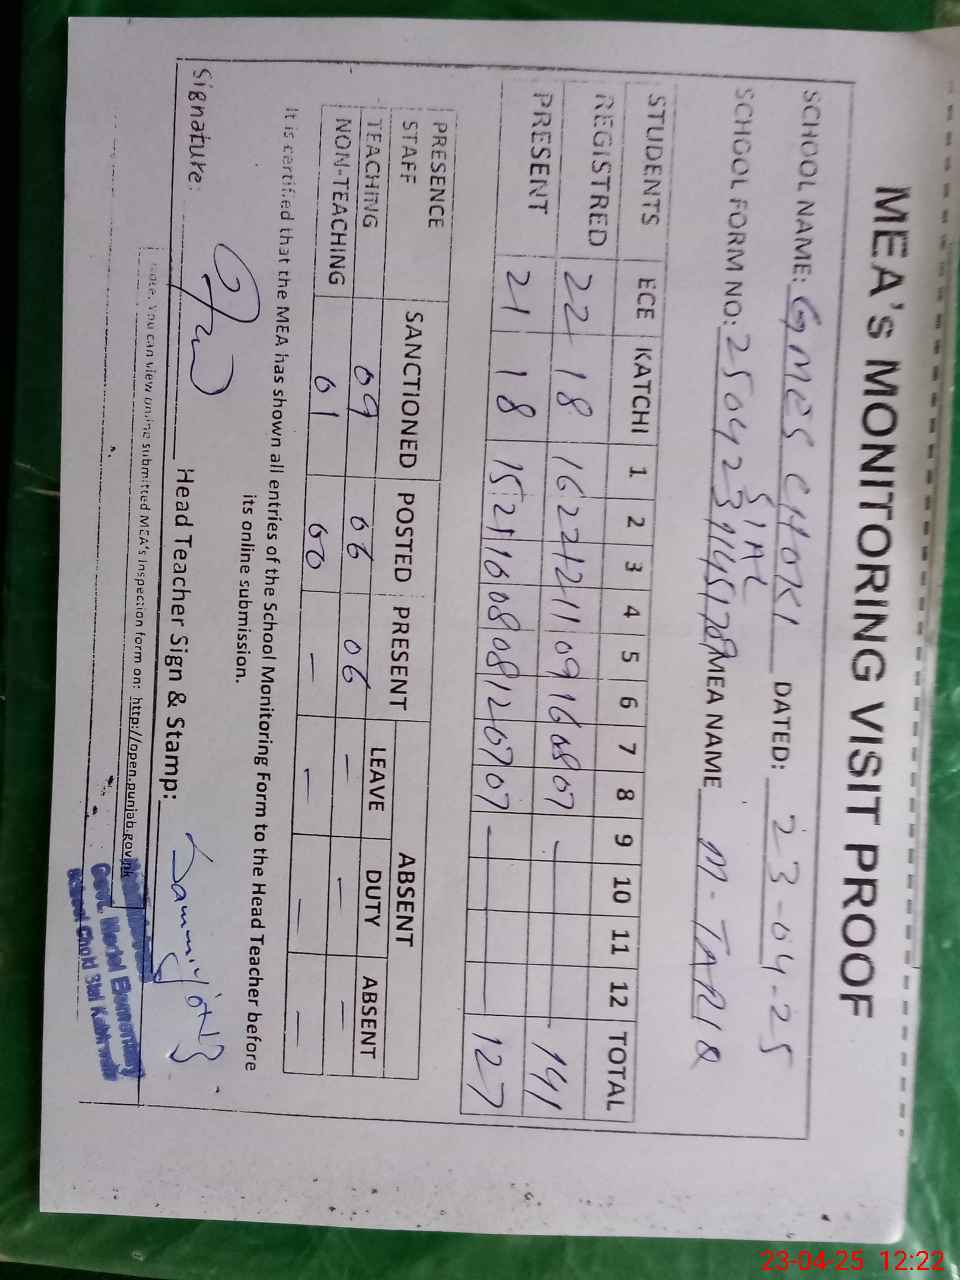 MEA's MONITORING VISIT PROOF
SCHOOL NAME: GMES CHOKI SIAL DATED: 23-04-25
SCHOOL FORM NO: MEA NAME M-TARIQ
STUDENTS ECE KATCHI 1 2 3 4 5 6 7 8 9 10 11 12 TOTAL
REGISTRED 22 18 16 22 12 11 09 16 08 07 — 141
PRESENT 21 18 15 21 16 08 08 12 07 07 — 127
PRESENCE
STAFF SANCTIONED POSTED PRESENT ABSENT
LEAVE DUTY ABSENT
TEACHING 09 06 06 — — —
NON-TEACHING 01 00 — — — —
It is certified that the MEA has shown all entries of the School Monitoring Form to the Head Teacher before
its online submission.
Signature: Head Teacher Sign & Stamp:
Note. You can view online submitted MEA's inspection form on: http://open.punjab.gov.pk
Govt. Model Elementary
School Choki Sial
23-04-25 12:22